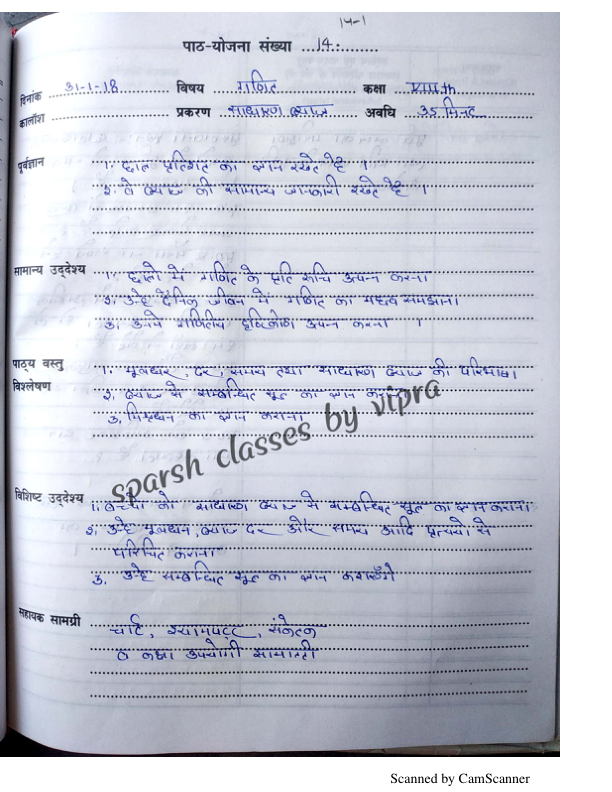 14-1
पाठ-योजना संख्या ...14...........
दिनांक ...31-1-18........ विषय .....गणित............ कक्षा ...VIIIth.........
कालांश ........................ प्रकरण ...साधारण ब्याज........ अवधि ...35 मिनट.....
पूर्वज्ञान 1. छात्र प्रतिशत का ज्ञान रखते है ।
2. वे ब्याज की सामान्य जानकारी रखते है ।
सामान्य उद्देश्य 1. छात्रो में गणित के प्रति रुचि उत्पन्न करना
2. उन्हे दैनिक जीवन में गणित का महत्व समझाना।
3. उनमे गणितीय दृष्टिकोण उत्पन्न करना ।
पाठ्य वस्तु 1. मूलधन, दर, समय तथा साधारण ब्याज की परिभाषा।
विश्लेषण 2. ब्याज से सम्बन्धित सूत्र का ज्ञान कराना
3. मिश्रधन का ज्ञान कराना
sparsh classes by vipra
विशिष्ट उद्देश्य 1. बच्चो को साधारण ब्याज से सम्बन्धित सूत्र का ज्ञान कराना
2. उन्हे मूलधन, ब्याज दर और समय आदि प्रत्ययो से
परिचित कराना
3. उन्हे सम्बन्धित सूत्र का ज्ञान
सहायक सामग्री
चार्ट, श्यामपट्ट, संकेतक
व कक्षा उपयोगी सामग्री
Scanned by CamScanner